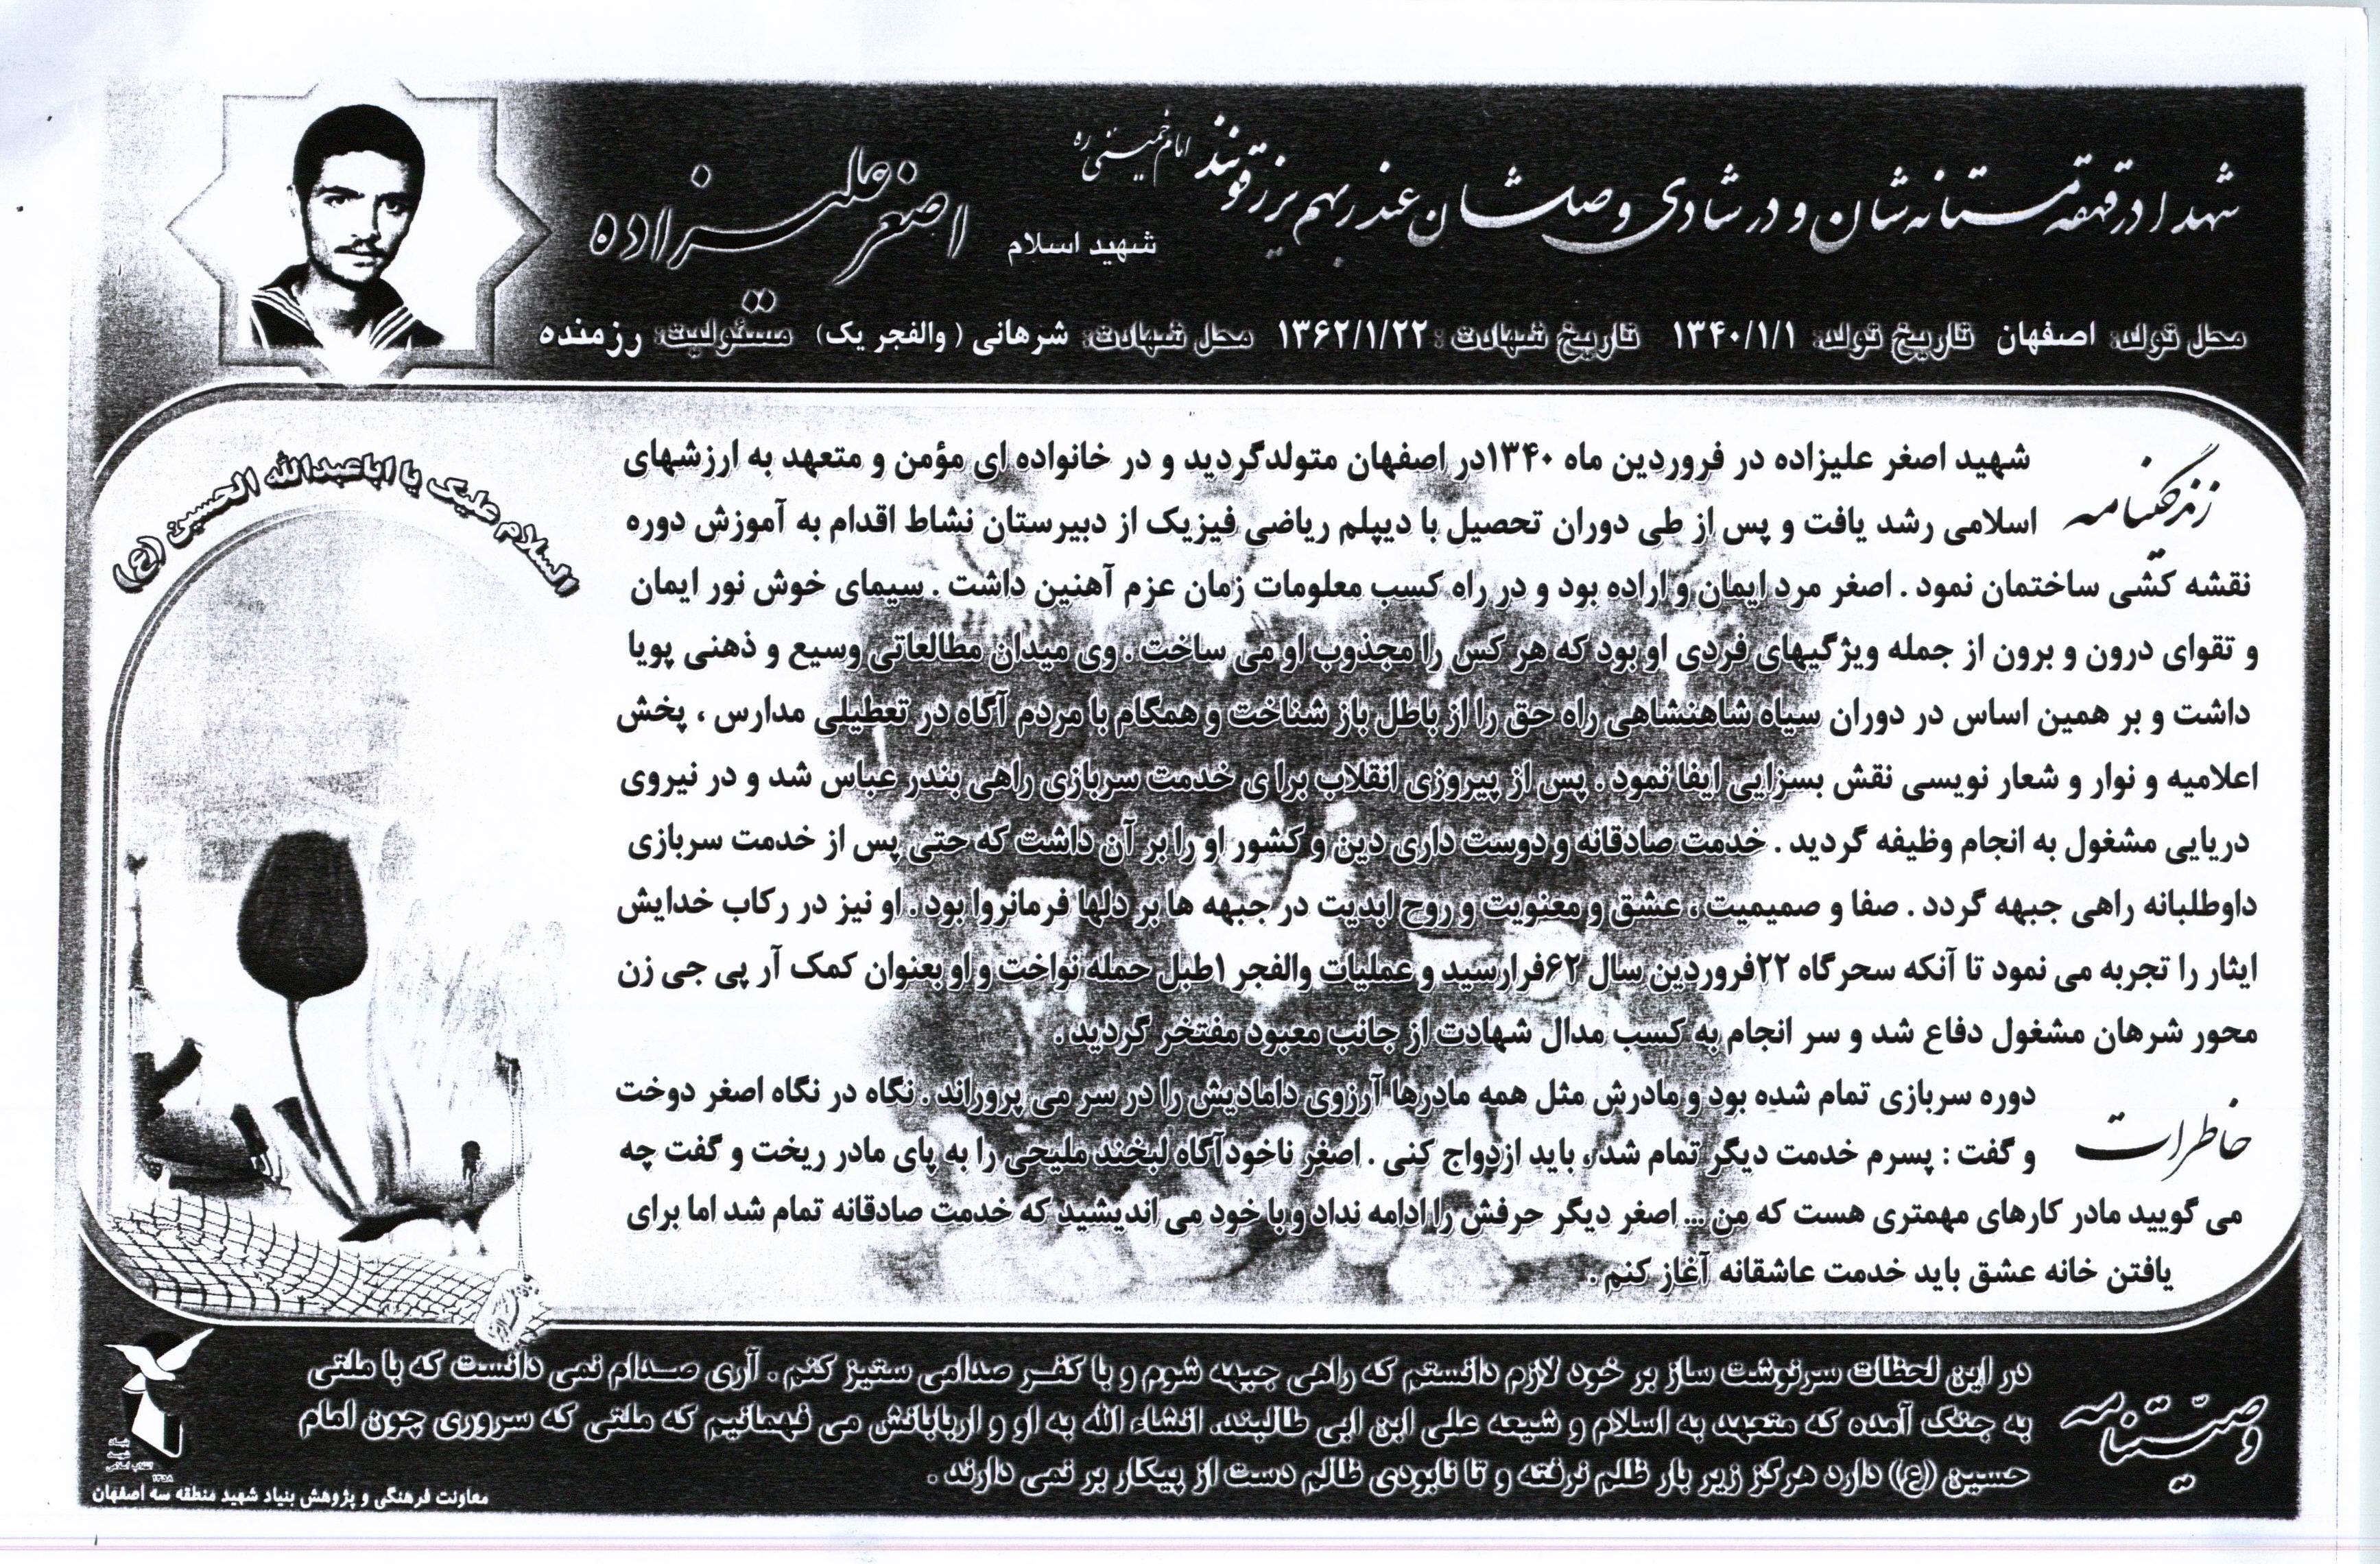 شهدا در قهقهه مستانه شان و در شادی وصلشان عند ربهم یرزقونند
امام خمینی ره
شهید اسلام
اصغر علیزاده
محل تولد: اصفهان تاریخ تولد: ۱۳۴۰/۱/۱ تاریخ شهادت: ۱۳۶۲/۱/۲۲ محل شهادت: شرهانی (والفجر یک) مسئولیت: رزمنده
السلام علیک یا اباعبدالله الحسین (ع)
زندگینامه
شهید اصغر علیزاده در فروردین ماه ۱۳۴۰در اصفهان متولدگردید و در خانواده ای مؤمن و متعهد به ارزشهای
اسلامی رشد یافت و پس از طی دوران تحصیل با دیپلم ریاضی فیزیک از دبیرستان نشاط اقدام به آموزش دوره
نقشه کشی ساختمان نمود . اصغر مرد ایمان و اراده بود و در راه کسب معلومات زمان عزم آهنین داشت . سیمای خوش نور ایمان
و تقوای درون و برون از جمله ویژگیهای فردی او بود که هر کس را مجذوب او می ساخت . وی میدان مطالعاتی وسیع و ذهنی پویا
داشت و بر همین اساس در دوران سیاه شاهنشاهی راه حق را از باطل باز شناخت و همگام با مردم آگاه در تعطیلی مدارس ، پخش
اعلامیه و نوار و شعار نویسی نقش بسزایی ایفا نمود . پس از پیروزی انقلاب برا ی خدمت سربازی راهی بندر عباس شد و در نیروی
دریایی مشغول به انجام وظیفه گردید . خدمت صادقانه و دوست داری دین و کشور او را بر آن داشت که حتی پس از خدمت سربازی
داوطلبانه راهی جبهه گردد . صفا و صمیمیت ، عشق و معنویت و روح ابدیت در جبهه ها بر دلها فرمانروا بود . او نیز در رکاب خدایش
ایثار را تجربه می نمود تا آنکه سحرگاه ۲۲فروردین سال ۶۲فرارسید و عملیات والفجر ۱طبل حمله نواخت و او بعنوان کمک آر پی جی زن
محور شرهان مشغول دفاع شد و سر انجام به کسب مدال شهادت از جانب معبود مفتخر گردید .
خاطرات
دوره سربازی تمام شده بود و مادرش مثل همه مادرها آرزوی دامادیش را در سر می پروراند . نگاه در نگاه اصغر دوخت
و گفت : پسرم خدمت دیگر تمام شد ، باید ازدواج کنی . اصغر ناخودآگاه لبخند ملیحی را به پای مادر ریخت و گفت چه
می گویید مادر کارهای مهمتری هست که من ... اصغر دیگر حرفش را ادامه نداد و با خود می اندیشید که خدمت صادقانه تمام شد اما برای
یافتن خانه عشق باید خدمت عاشقانه آغاز کنم .
وصیتنامه
در این لحظات سرنوشت ساز بر خود لازم دانستم که راهی جبهه شوم و با کفر صدامی ستیز کنم . آری صدام نمی دانست که با ملتی
به جنگ آمده که متعهد به اسلام و شیعه علی ابن ابی طالبند. انشاء الله به او و اربابانش می فهمانیم که ملتی که سروری چون امام
حسین (ع) دارد هرگز زیر بار ظلم نرفته و تا نابودی ظالم دست از پیکار بر نمی دارند .
بنیاد
شهید
انقلاب اسلامی
۱۳۵۸
معاونت فرهنگی و پژوهش بنیاد شهید منطقه سه اصفهان